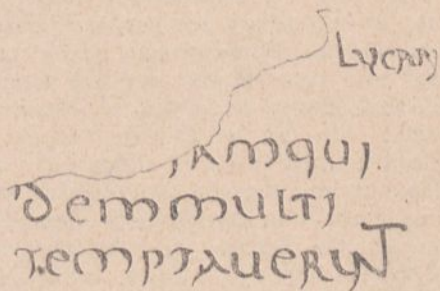 LUCAN
iamqui.
demmulti
temptauerunt